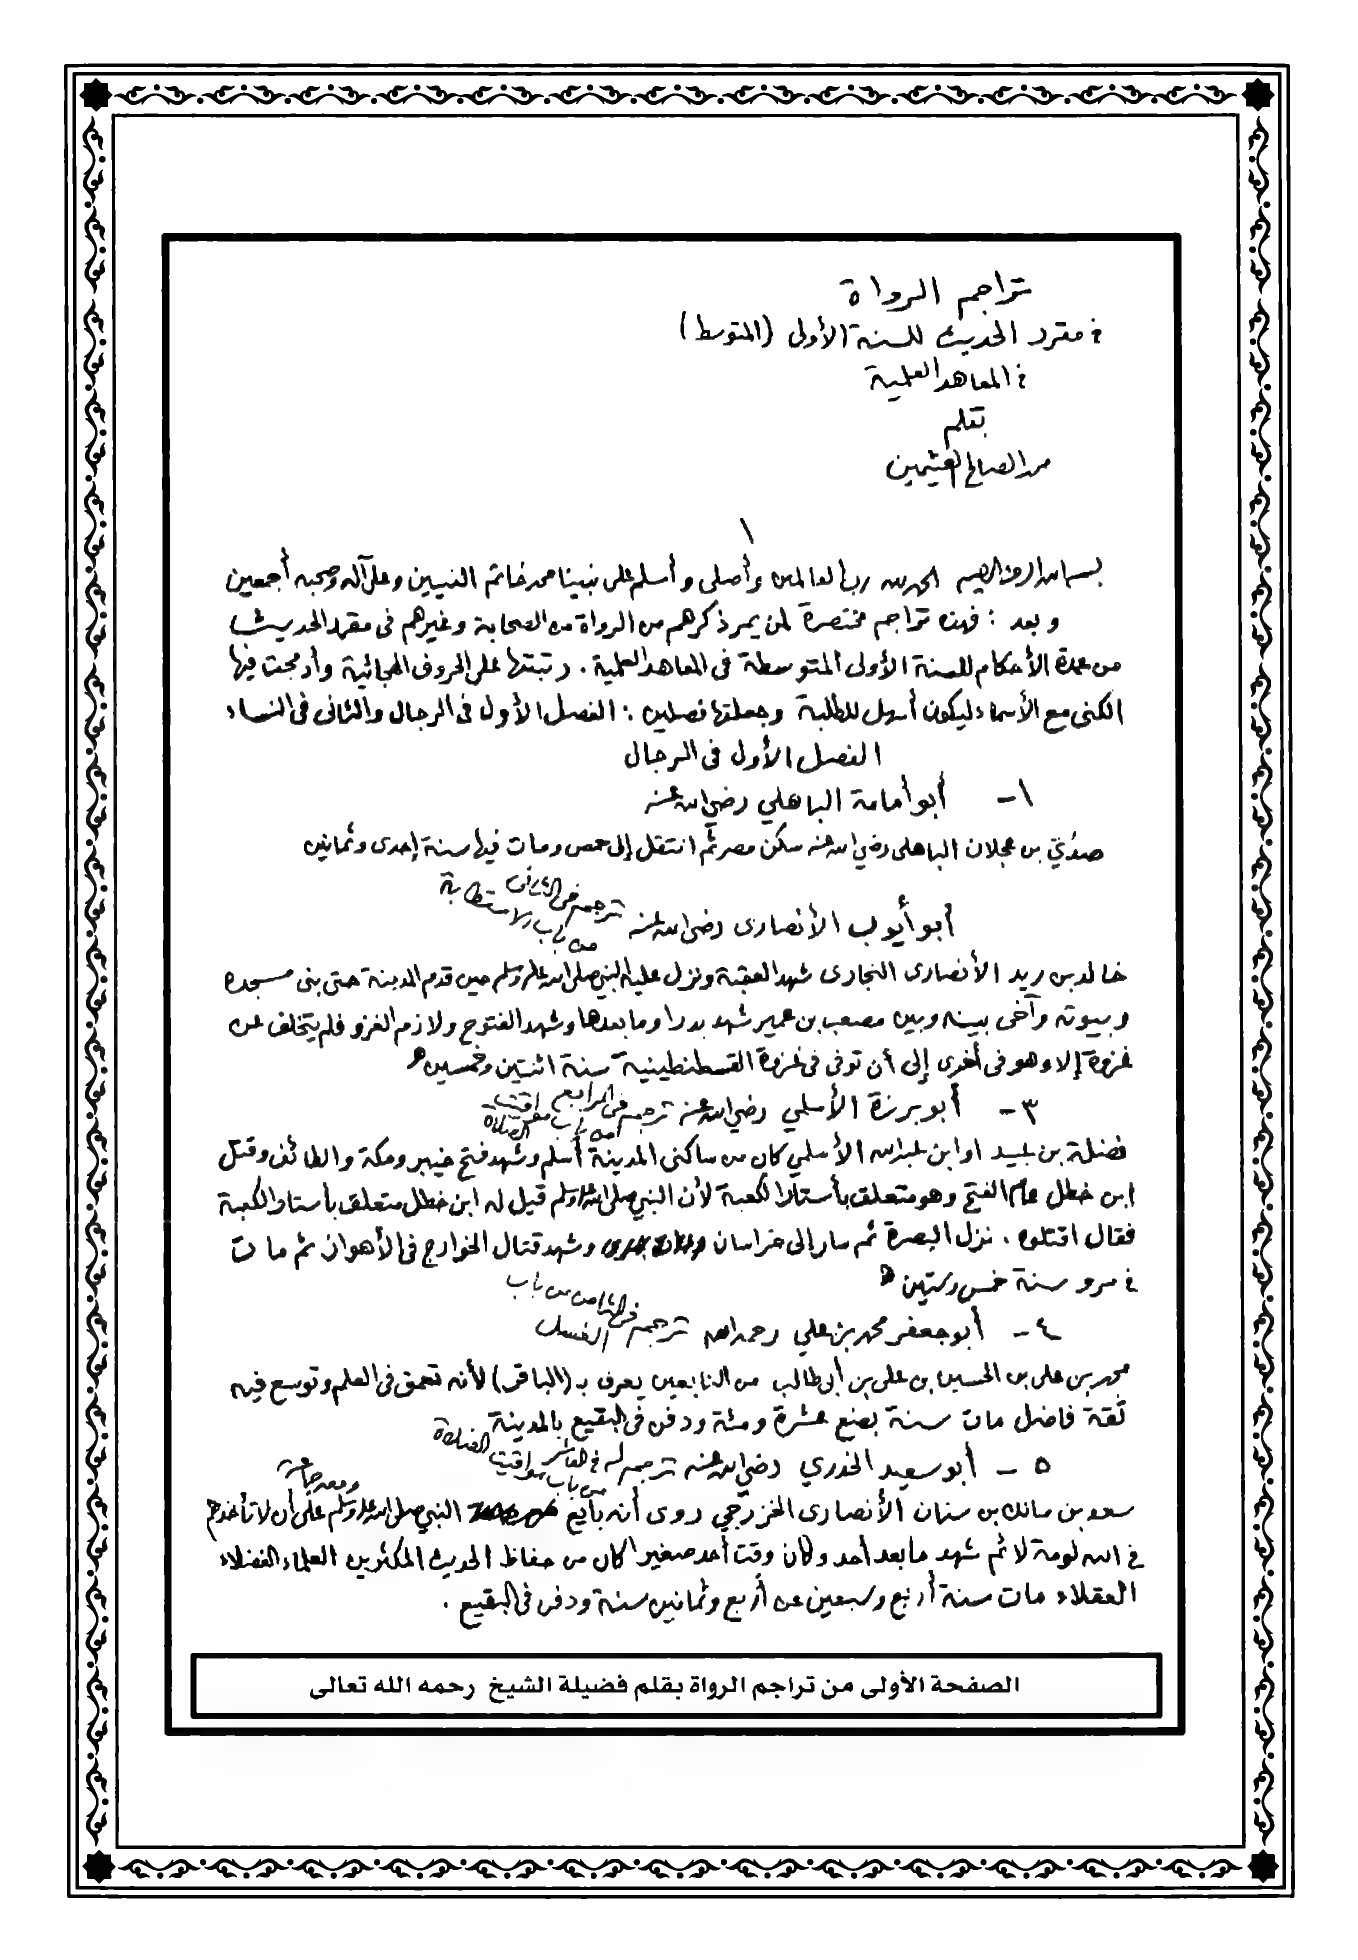 تراجم الرواة
في مقرر الحديث للسنة الأولى (المتوسط)
في المعاهد العلمية
بقلم
محمد الصالح العثيمين
١
بسم الله الرحمن الرحيم الحمد لله رب العالمين وأصلي وأسلم على نبينا محمد خاتم النبيين وعلى آله وصحبه أجمعين
وبعد : فهذه تراجم مختصرة لمن يمر ذكرهم من الرواة من الصحابة وغيرهم في مقرر الحديث
من عمدة الأحكام للسنة الأولى المتوسطة في المعاهد العلمية . رتبتها على الحروف الهجائية وأدمجت فيها
الكنى مع الأسماء ليكون أسهل للطلبة وجعلتها فصلين : الفصل الأول في الرجال والثاني في النساء
الفصل الأول في الرجال
١- أبو أمامة الباهلي رضي الله عنه
صُدَيّ بن عجلان الباهلي رضي الله عنه سكن مصر ثم انتقل إلى حمص ومات فيها سنة إحدى وثمانين
أبو أيوب الأنصاري رضي الله عنه ترجم في
من باب الاستطابة
خالد بن زيد الأنصاري النجاري شهد العقبة ونزل عليه النبي صلى الله عليه وسلم حين قدم المدينة حتى بنى مسجده
وبيوته وآخى بينه وبين مصعب بن عمير شهد بدرا وما بعدها وشهد الفتوح ولازم الغزو فلم يتخلف عن
غزوة إلا وهو في أخرى إلى أن توفي في غزوة القسطنطينية سنة اثنتين وخمسين
٣- أبو برزة الأسلمي رضي الله عنه ترجم في الرابع
من باب مواقيت الصلاة
فضلة بن عبيد او ابن عبد الله الأسلمي كان من ساكني المدينة أسلم وشهد فتح خيبر ومكة والطائف وقتل
ابن خطل عام الفتح وهو متعلق بأستار الكعبة لأن النبي صلى الله عليه وسلم قيل له ابن خطل متعلق بأستار الكعبة
فقال اقتلوه . نزل البصرة ثم سار إلى خراسان وشهد قتال الخوارج في الأهواز ثم مات
في مرو سنة خمس وستين
٤- أبو جعفر محمد بن علي رحمه الله ترجم في الثامن من باب
الغسل
محمد بن علي بن الحسين بن علي بن أبي طالب من التابعين يعرف بـ (الباقر) لأنه تعمق في العلم وتوسع فيه
ثقة فاضل مات سنة بضع عشرة ومئة ودفن في البقيع بالمدينة
٥- أبو سعيد الخدري رضي الله عنه ترجم له في العاشر
من باب مواقيت الصلاة
سعد بن مالك بن سنان الأنصاري الخزرجي روى أنه بايع ومعه جماعة النبي صلى الله عليه وسلم على أن لا تأخذهم
في الله لومة لائم شهد ما بعد أحد وكان وقت أحد صغيرا كان من حفاظ الحديث المكثرين العلماء الفضلاء
العقلاء مات سنة أربع وسبعين عن أربع وثمانين سنة ودفن في البقيع .
الصفحة الأولى من تراجم الرواة بقلم فضيلة الشيخ رحمه الله تعالى